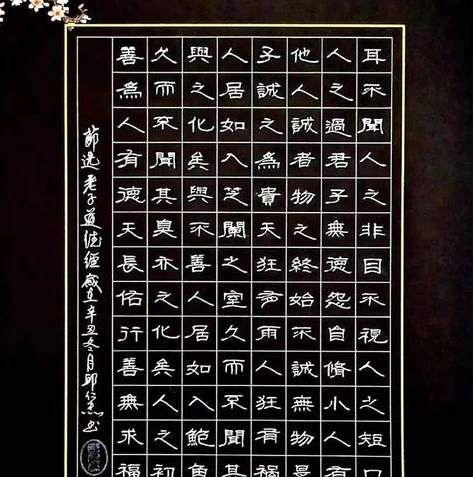 耳不聞人之非目不視人之短口
人之過君子無德怨自脩小人有
他人誠者物之終始不誠無物是
子誠之為貴天狂有雨人狂有禍
人居如入芝蘭之室久而不聞其
與之化矣與不善人居如入鮑魚
久而不聞其臭亦之化矣人之初
善為人有德天長佑行善無求福
節選老子道德經歲在辛丑冬月邱書